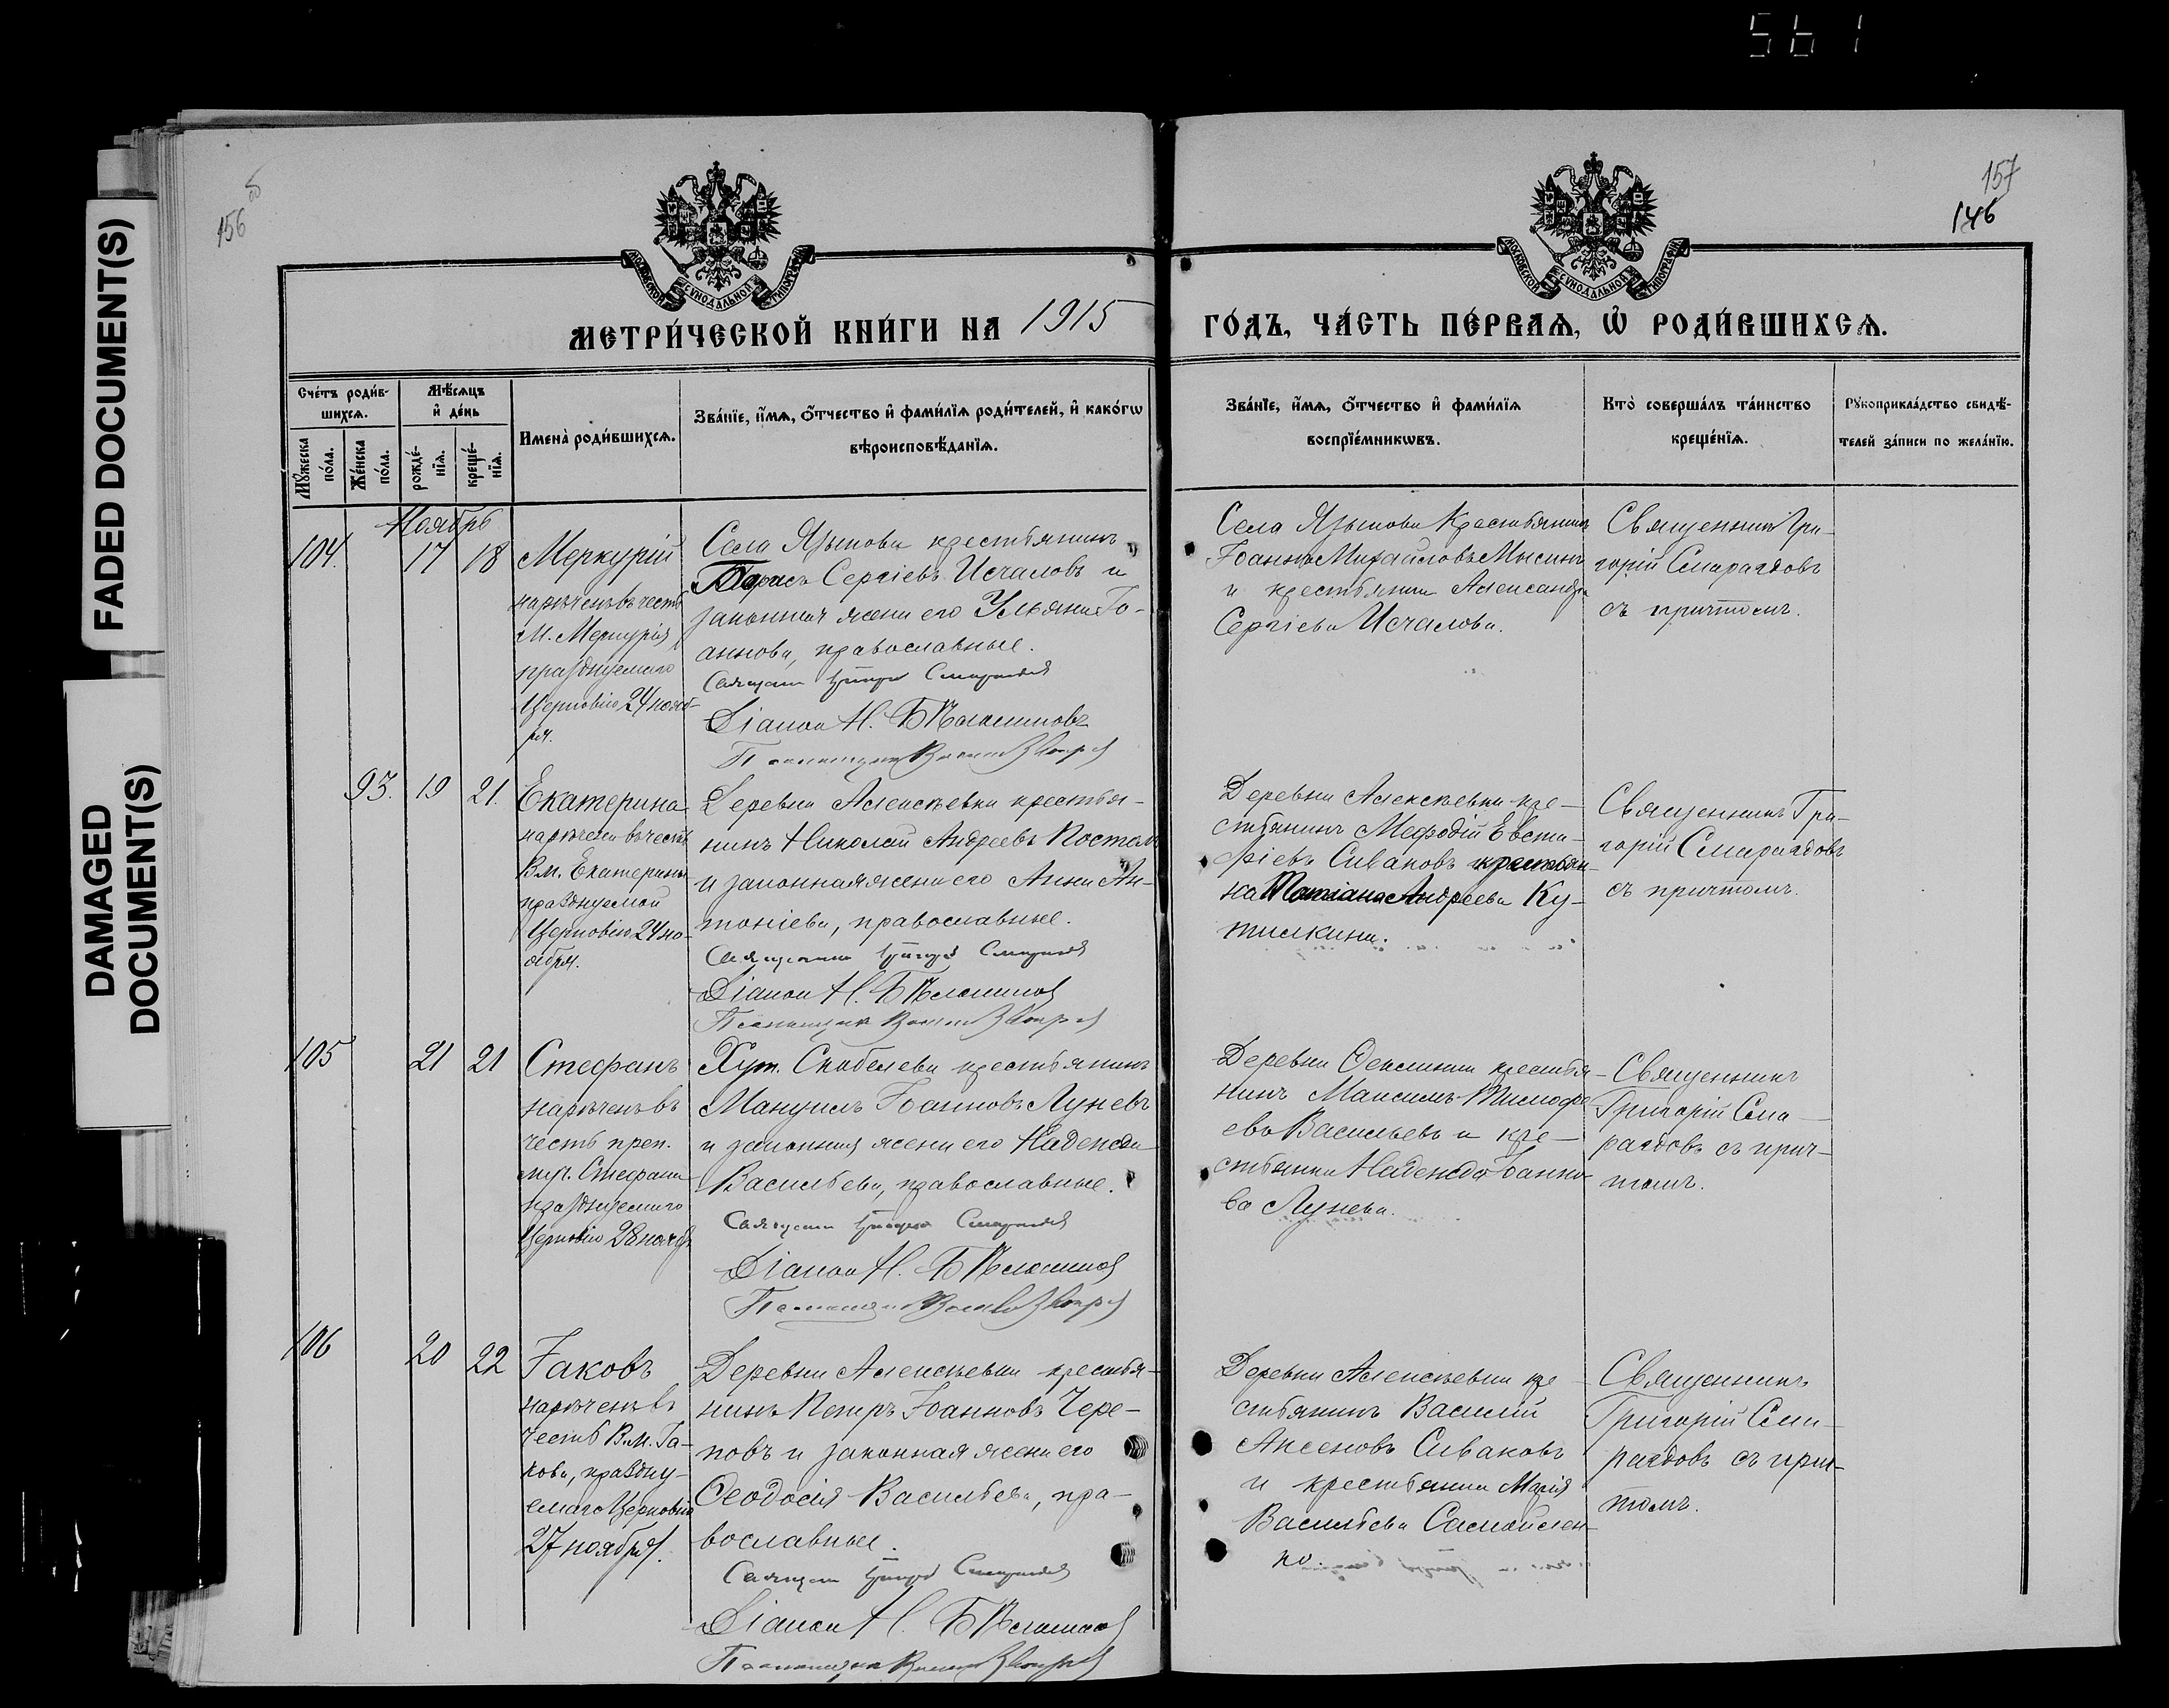 561
FADED DOCUMENT(S)
DAMAGED
DOCUMENT(S)
156
об
157
146
МОСКОВСКОЙ СѴНОДАЛЬНОЙ ТИПОГРАФІИ
МОСКОВСКОЙ СѴНОДАЛЬНОЙ ТИПОГРАФІИ
МЕТРИ́ЧЕСКОЙ КНИ́ГИ НА 1915
ГО́ДЪ, ЧА́СТЬ ПЕ́РВАѦ, Ѡ҆ РОДИ́ВШИХСѦ.
Сче́тъ роди́в-
шихсѧ.
Мꙋ́жеска
по́ла.
Же́нска
по́ла.
Мѣ́сѧцъ
и҆ де́нь
рожде́-
нїѧ.
креще́-
нїѧ.
Имена̀ роди́вшихсѧ.
Зва́нїе, и҆́мѧ, ѻ҆́тчество и҆ фами́лїѧ роди́телей, и҆ како́гѡ
вѣроисповѣ́данїѧ.
Зва́нїе, и҆́мѧ, ѻ҆́тчество и҆ фами́лїѧ
воспрїе́мникѡвъ.
Кто̀ соверша́лъ та́инство
креще́нїѧ.
Рꙋкоприкла́дство свидѣ́-
телей за́писи по жела́нїю.
Ноябрь
104. 17 18
Меркурій
нареченъ въ честь
М. Меркурія
празднуемаго
Церковію 24 нояб-
ря.
Села Языкова крестьянинъ
Борисъ Сергіевъ Исчаловъ и
законная жена его Ульяна Іо-
аннова, православные.
Священ. Григорій Смарагдовъ
Діакон Н.
Псаломщик
Села Языкова Крестьянинъ
Іоаннъ Михайловъ Мысинъ
и крестьянка Александра
Сергіева Исчалова.
Священникъ Гри-
горій Смарагдовъ
съ причтомъ.
93. 19 21.
Екатерина
наречена въ честь
Вм. Екатерины
празднуемой
Церковію 24 но-
ября.
Деревни Алексѣевки крестья-
нинъ Николай Андреевъ
и законная жена его Анна Ан-
тоніева, православные.
Священник Григорій Смарагдовъ
Діакон Н.
Псаломщик
Деревни Алексѣевки кре-
стьянинъ Мефодій Евста-
фіевъ Сиваковъ крестьян-
ка Татіана Андреева Ку-
тилкина.
Священникъ Гри-
горій Смарагдовъ
съ причтомъ.
105 21 21
Стефанъ
нареченъ въ
честь преп.
муч. Стефана
празднуемаго
Церковію 28 ноября
Хут. Скобелева крестьянинъ
Мануилъ Іоанновъ Луневъ
и законная жена его Надежда
Васильева, православные.
Священ. Григорій Смарагдовъ
Діакон Н.
Псаломщик
Деревни крестья-
нинъ Максимъ Тимофе-
евъ Васильевъ и кре-
стьянка Надежда Іоанно-
ва Лунева.
Священникъ
Григорій Сма-
рагдовъ съ прич-
томъ.
106 20 22
Іаковъ
нареченъ въ
честь В.м. Іа-
кова, праздну-
емаго Церковію
27 ноября.
Деревни Алексѣевки крестья-
нинъ Петръ Іоанновъ Чере-
повъ и законная жена его
Ѳеодосія Васильева, пра-
вославные.
Священ. Григорій Смарагдовъ
Діакон Н.
Псаломщик
Деревни Алексѣевки кре-
стьянинъ Василій
Аксеновъ Сиваковъ
и крестьянка Марія
Васильева Самойлен-
ко.
Священникъ
Григорій Сма-
рагдовъ съ прич-
томъ.